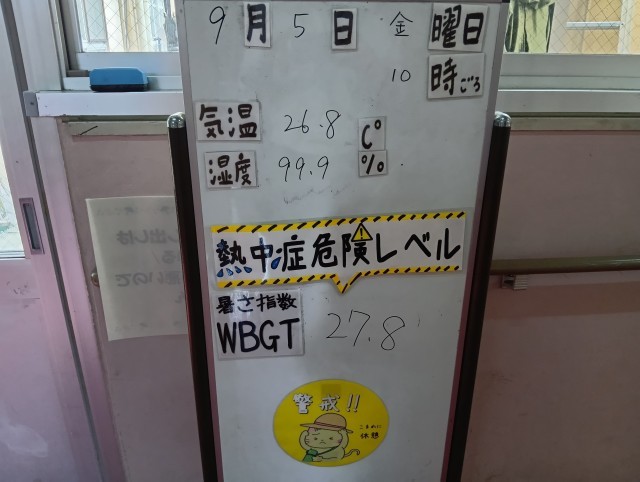 9月5日 金曜日
10時ごろ
気温 26.8 C°
湿度 99.9 %
熱中症危険レベル
暑さ指数
WBGT 27.8
警戒!!
こまめに
休憩